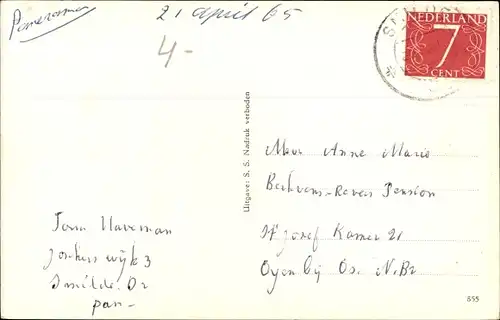 21 april 65
4-
NEDERLAND
7
CENT
Uitgave: S. S. Nadruk verboden
Mevr Anne Marie
Pension
St Jozef Kamer 21
Oyen bij Os. N.Br
Tom Haveman
wijk 3
Smilde. Dr
pan-
655